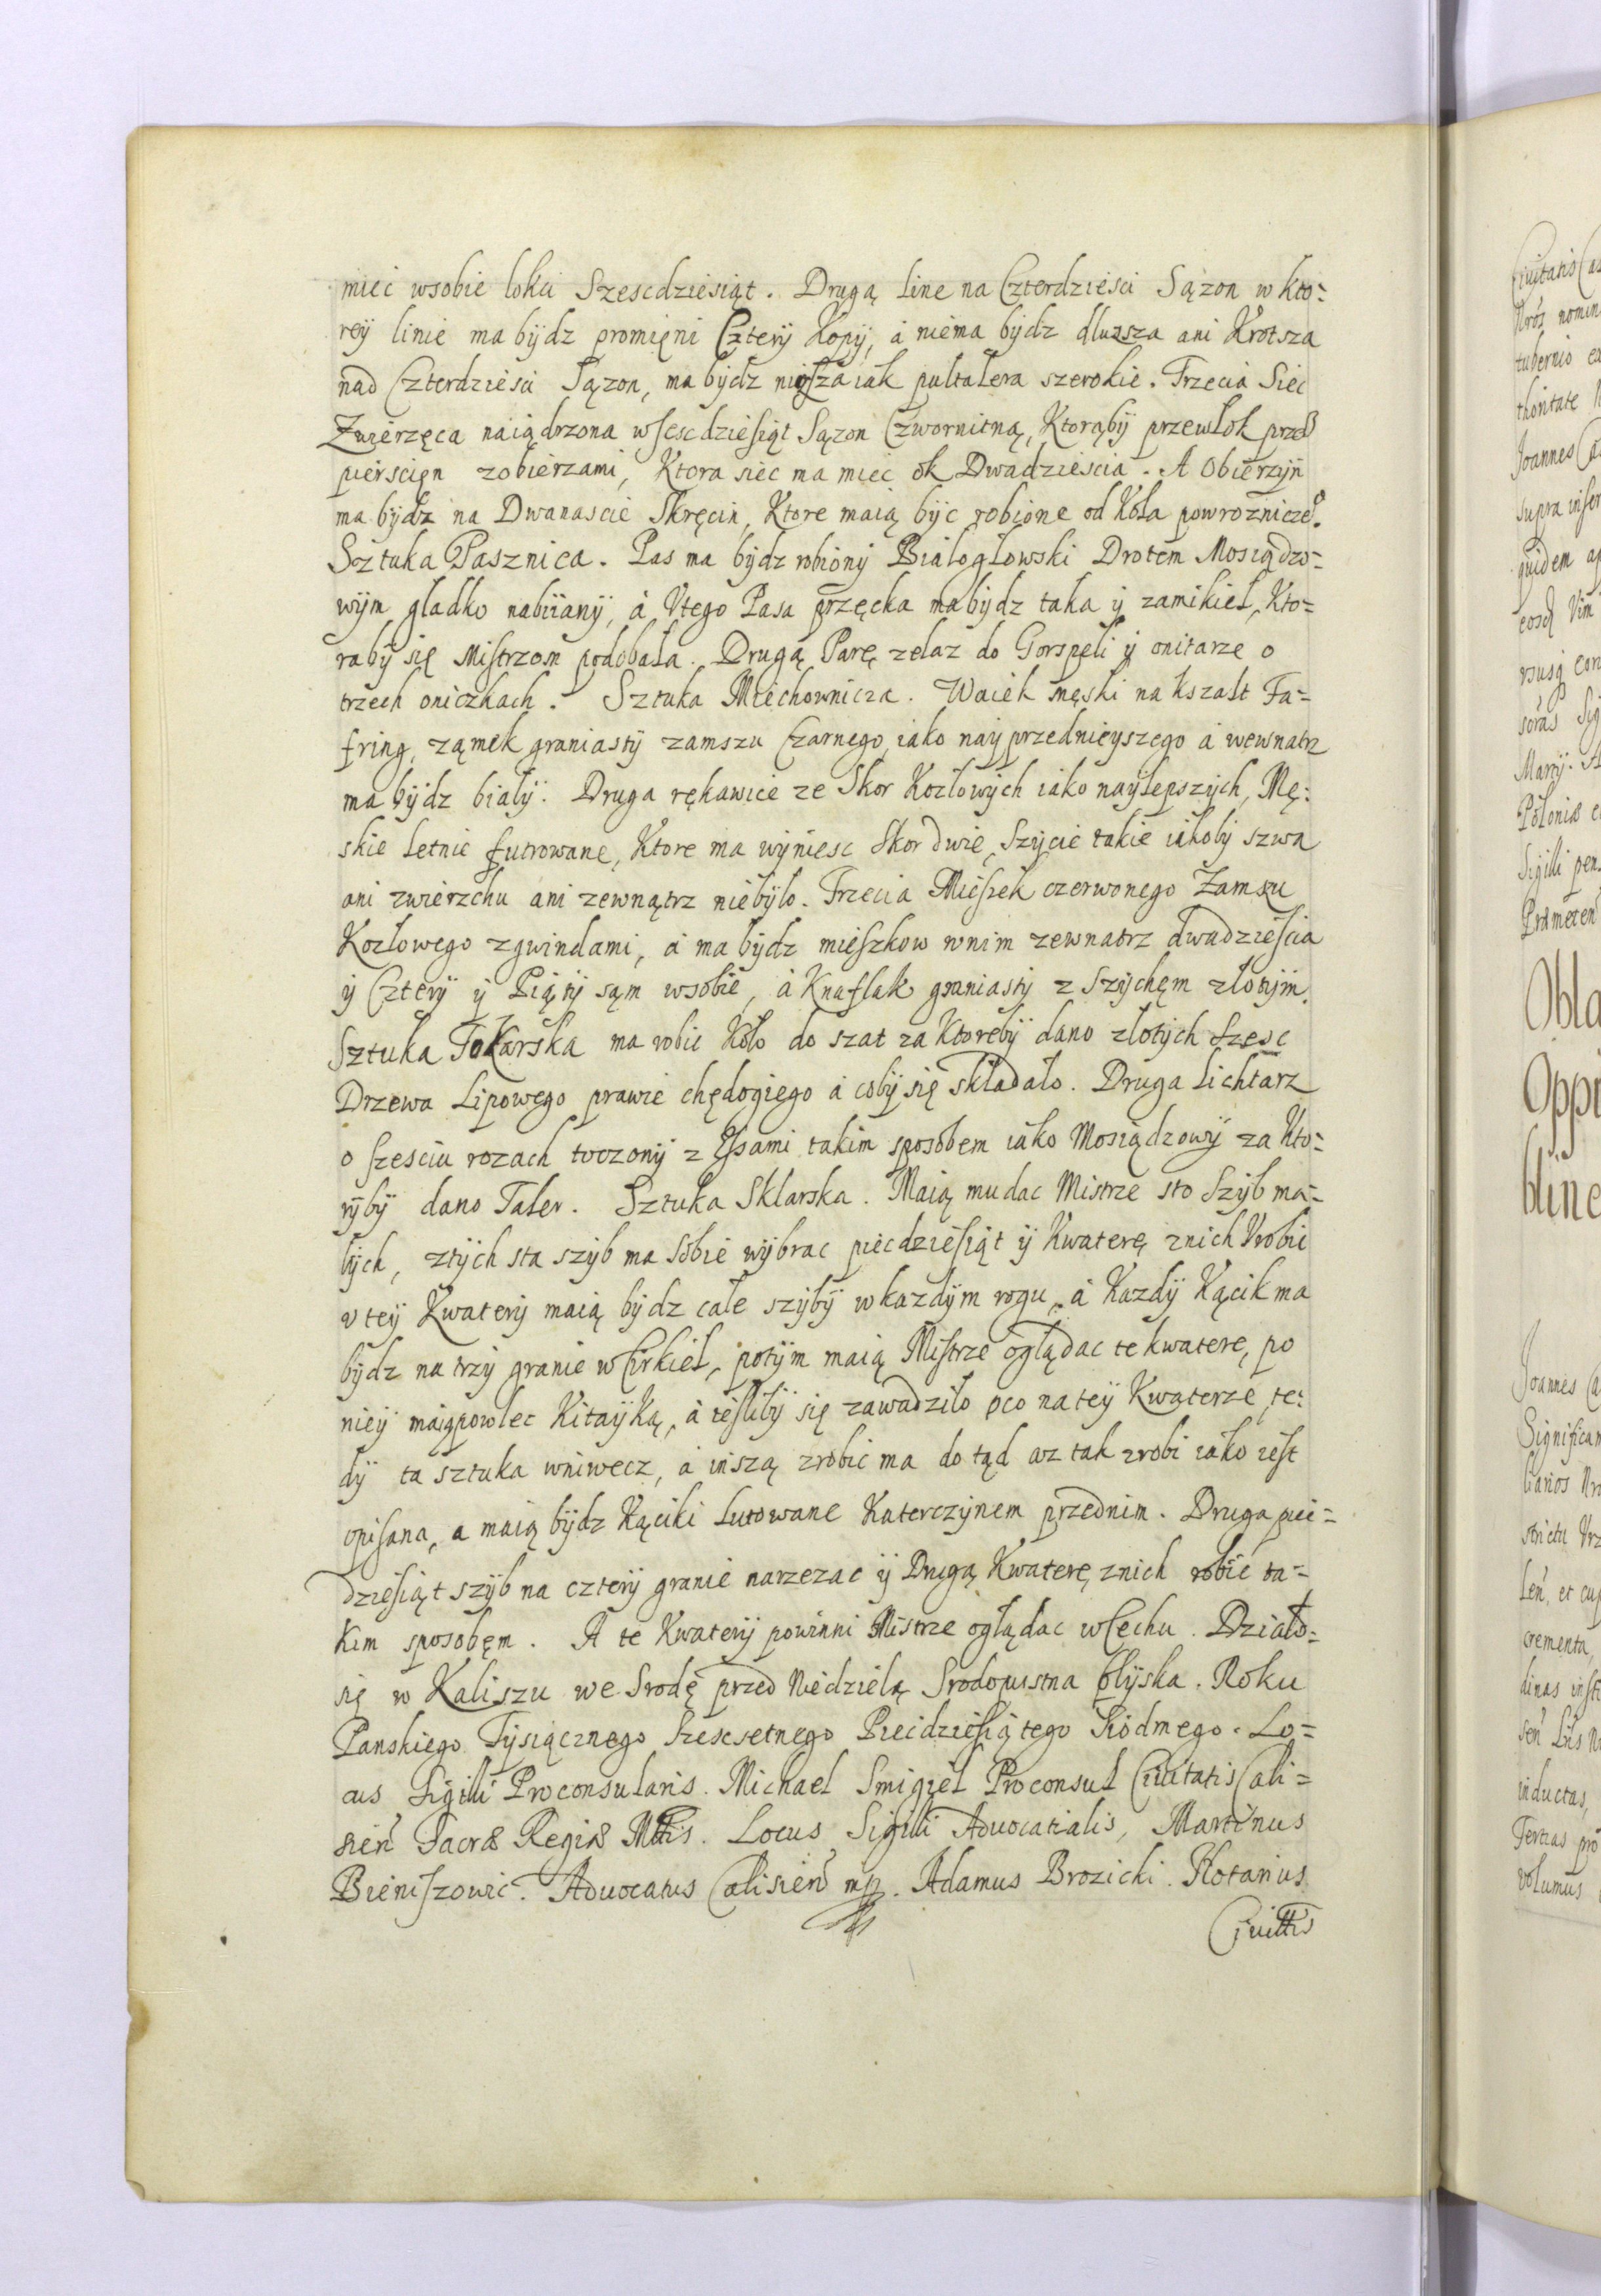 miec wsobie lokci Szescdziesiąt. Drugą line na Czterdziesci Sązon w kto:
rey linie ma bydz promięni Cztery Kopy, a niema bydz dluzsza ani Krotsza
nad Czterdziesci Sązon, ma bydz iak pultalera szerokie. Trzecia Siec
Zwierzęca naiądrzona wsescdziesiąt Sązon Czwornitną, Ktorąby przewlok przed
pierscien zobierzami, Ktora siec ma miec ok Dwadziescia. A Obierzyn
ma bydz na Dwanascie Skręcin, Ktore maią byc robione od Koła
Sztuka Pasznica. Pas ma bydz robiony Białogłowski Drotem Mosiądzo=
wym gladko nabiiany, a Vtego Pasa przęcka ma bydz taka y zamikiel, Kto=
raby się Mistrzom podobała. Drugą Parę zelaz do Gorspeli y onitarze o
trzech oniczkach. Sztuka Miechownicza. Wacek męski na kszalt Fa=
fring, ząmek graniasty zamszu Czarnego iako nayprzednieyszego a wewnatrz
ma bydz bialy. Druga rękawice ze Skor Kozłowych iako naylepszych, Mę:
skie letnie futrowane, Ktore ma wyniesc Skor dwie, Szycie takie iakoby szwa
ani zwierzchu ani zewnątrz niebyło. Trzecia Mieszek czerwonego Zamszu
Kozłowego zgwindami, a ma bydz mieszkow wnim zewnatrz dwadziescia
y Cztery y Piąty sąm wsobie, a Knaflak graniasty z Szychęm złotym.
Sztuka Tokarska ma robic Koło do szat za Ktoreby dano złotych szesc
Drzewa Lipowego prawie chędogiego a coby się składało. Druga Lichtarz
o szesciu rozach toczony z Essami takim sposobem iako Mosiądzowy za Kto:
ryby dano Taler. Sztuka Sklarska. Maią mu dac Mistrze sto Szyb ma=
lych, ztych sta szyb ma sobie wybrac piecdziesiąt y Kwaterę znich Vrobic
v tey Kwatery maią bydz całe szyby w kazdym rogu, a Kazdy Kącik ma
bydz na trzy granie w Cirkiel, potym maią Mistrze oglądac te kwatere, po
niey maią powlec Kitayką, a iesliby się zawadziło oco na tey Kwaterze te:
dy ta sztuka wniwecz, a inszą zrobic ma do tąd az tak zrobi iako iest
opisana, a maią bydz Kąciki Lutowane Katerczynem przednim. Druga piec=
dziesiąt szyb na cztery granie narzezac y Drugą Kwaterę znich robic ta=
kim sposobęm. A te Kwatery powinni Mistrze oglądac w Cechu. Działo=
się w Kaliszu we Srodę przed Niedzielą Srodopustna blyska. Roku
Panskiego Tysiącznego Szescsetnego Piecdziesiątego Siodmego. Lo=
cus Sigilli Proconsularis. Michael Smigiel Proconsul Ciuitatis Cali=
sien Sacræ Regiæ Mttis. Locus Sigilli Aduocatialis, Martinus
Bieniszowic. Aduocatus Calisien mp. Adamus Brozicki. Notarius
Ciuittis